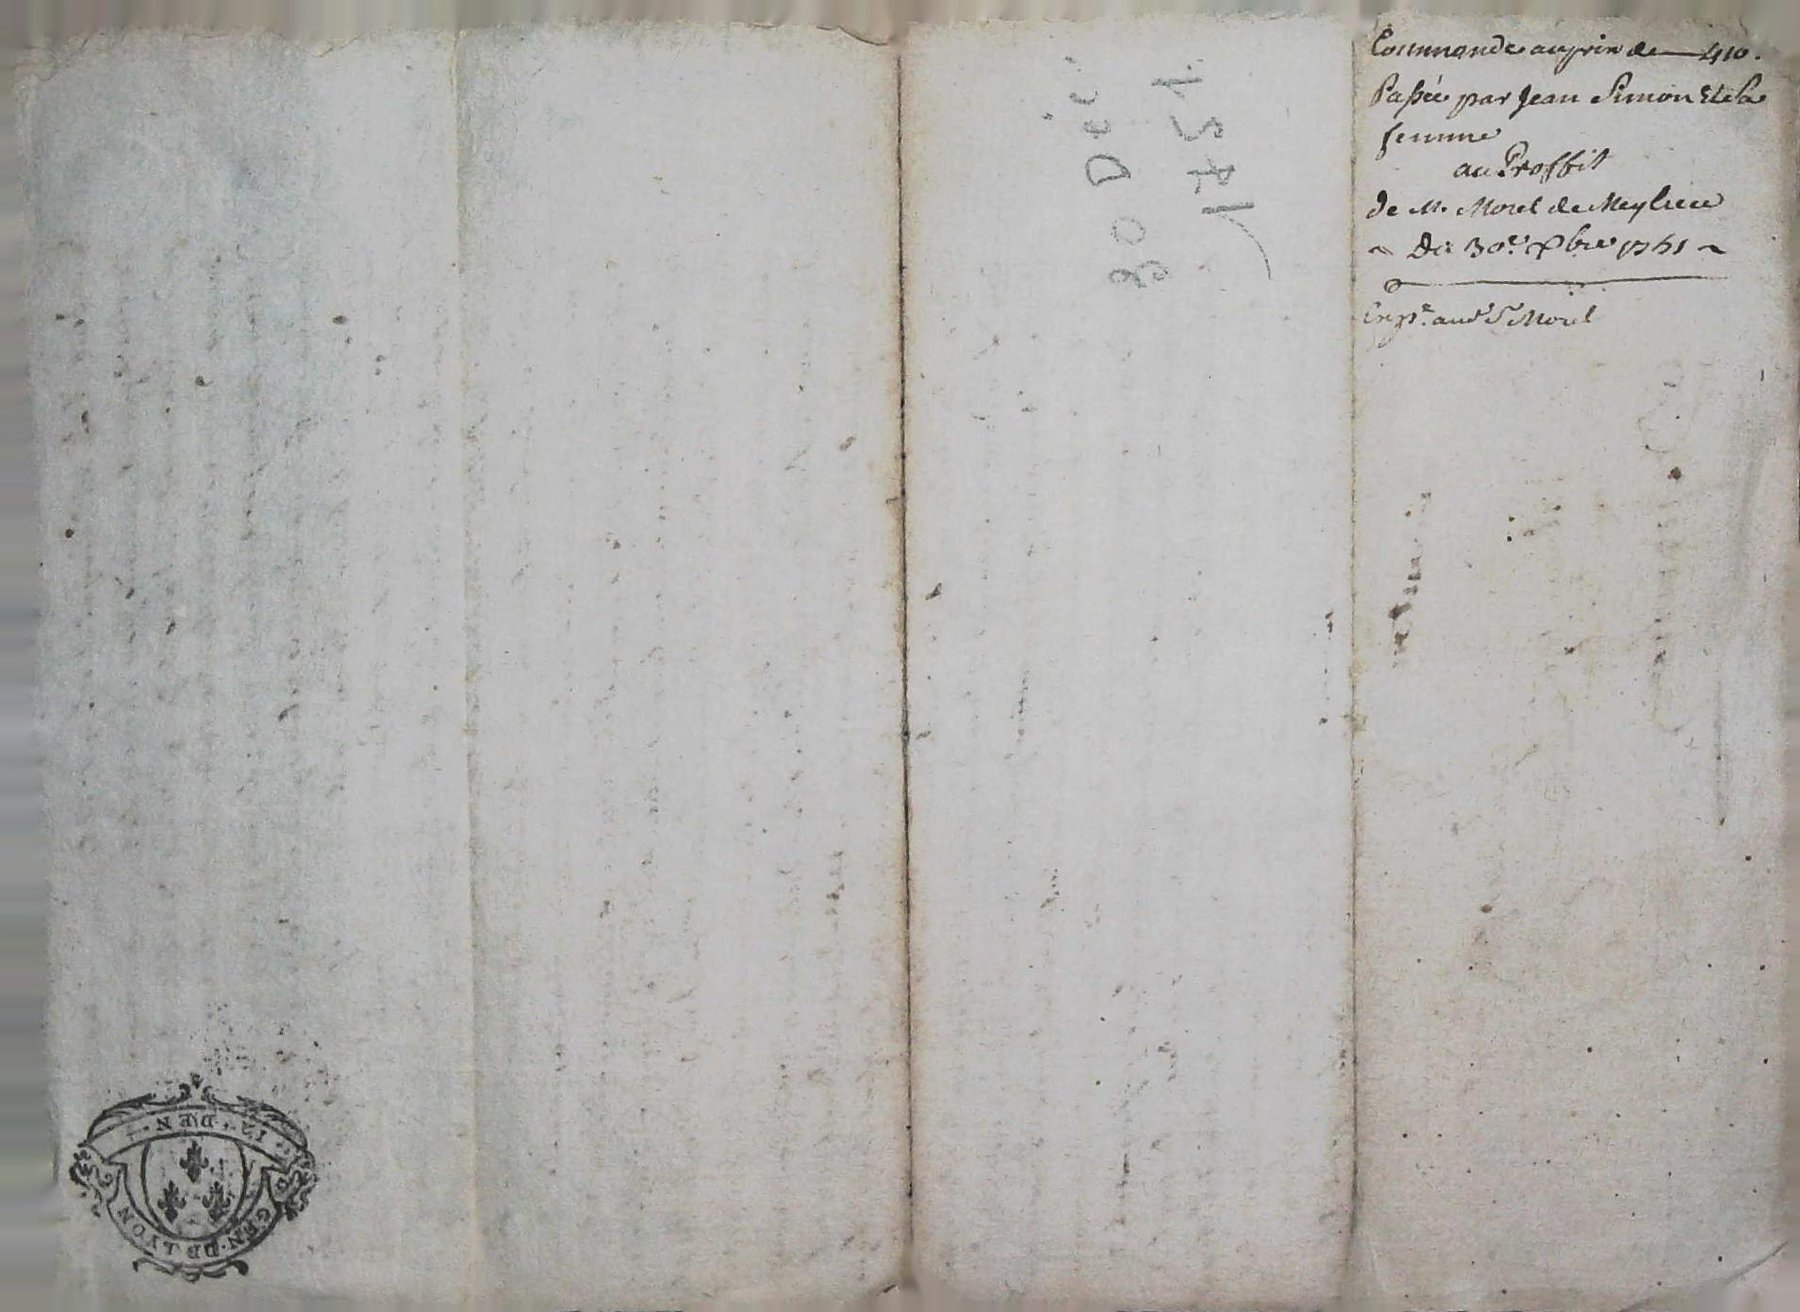 Commande au prix de — 410.
Passée par Jean Simon Et Sa
femme
au Proffit
de Mr. Morel de
Du 30e. Xbre 1751
aud. Sr Morel
30 Déc.
1751.
GEN·DE LYON